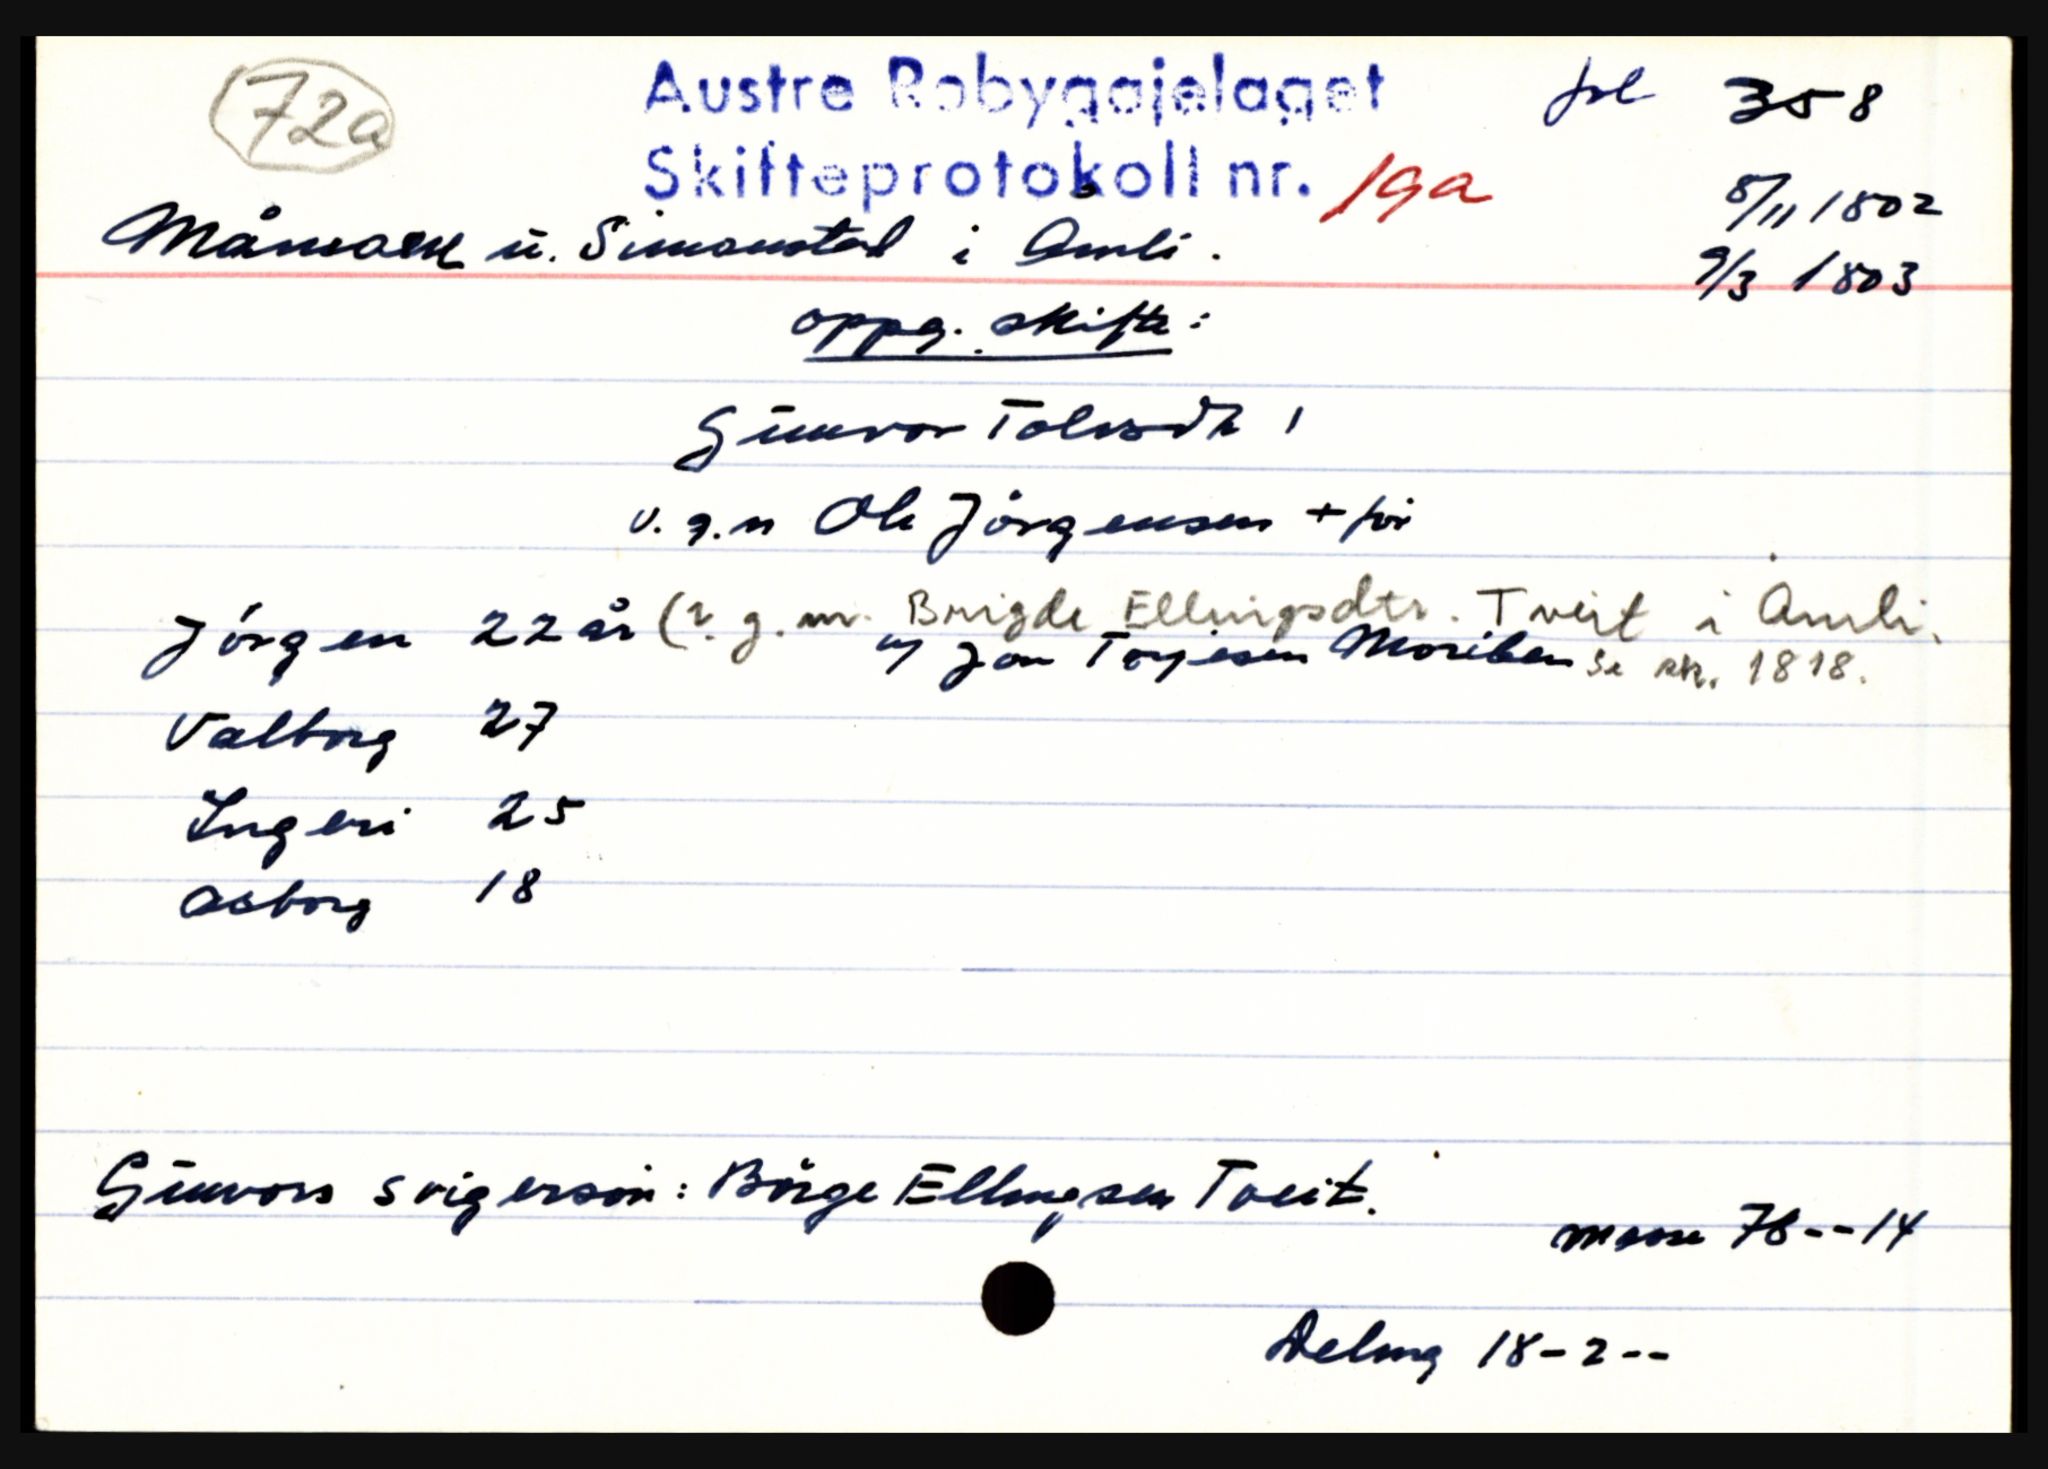 72a
Austre Robyggjelaget fol 358
Skifteprotokoll nr. 19a
8/11 1802
u. Simonstad i Åmli.
9/3 1803
oppg. skifte:
Gunvor
v. g. m Ole Jörgensen + för
Jörgen 22 år (v. g. m. Ellingsdtr. Tveit i Åmli.
Jon Torjesen Se sk. 1818.
Valborg 27
Ingeri 25
Asborg 18
Gunvors svigersön: Börge Ellingsen Tveit.
masse 78--14
Deling 18-2--